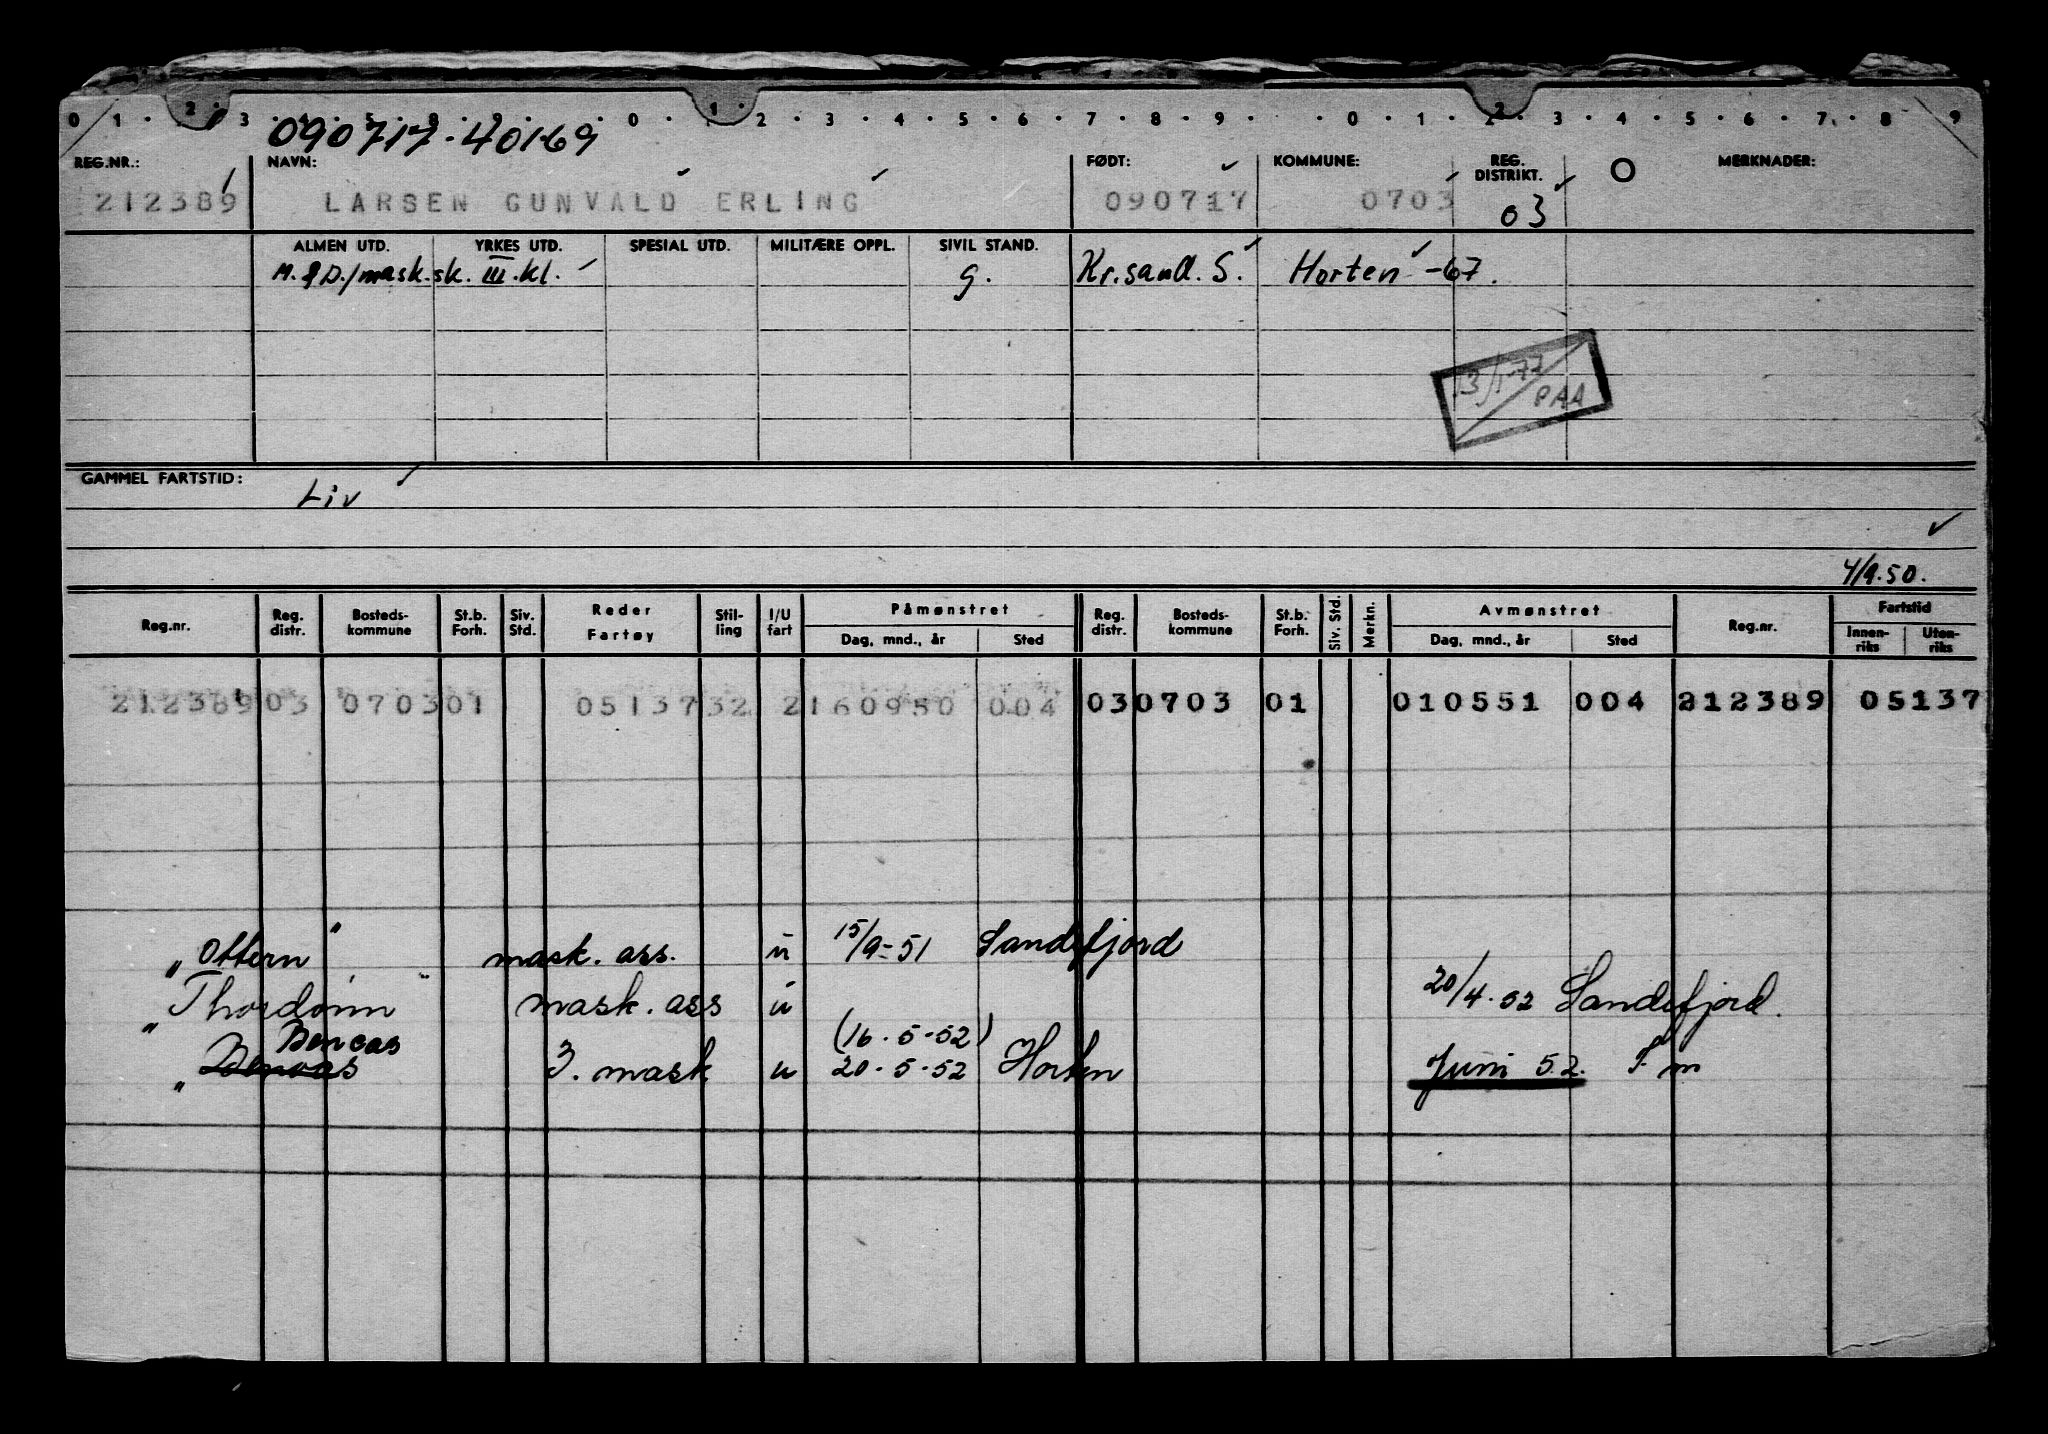 0 1 . 2 . 3 . 4 . 5 . 8 . 9 . 0 . 1 . 2 . 3 . 4 . 5 . 6 . 7 . 8 . 9 . . 0 . 1 . 2 . 3 . 4 . 5 . 6 . 7 . 8 9
090717.40169
REG.NR.: NAVN: FØDT: KOMMUNE: REG. DISTRIKT. O MERKNADER:
212389 LARSEN GUNVALD ERLING 090717 0703 03
ALMEN UTD. YRKES UTD. SPESIAL UTD. MILITÆRE OPPL. SIVIL STAND.
M. & D./mask.sk. III.kl. g. Kr.sand. S. Horten -67.
13/1-77
PAA
GAMMEL FARTSTID: Liv
4/9.50.
Reg.nr. Reg. distr. Bosteds-kommune St.b. Forh. Siv. Std. Reder Fartøy Stil-ling I/U fart Påmønstret Dag, mnd., år Sted Reg. distr. Bosteds-kommune St.b. Forh. Siv. Std. Merkn. Avmønstret Dag, mnd., år Sted Reg.nr. Fartstid Innen-riks Uten-riks
212389 03 0703 01 05137 32 2 160950 004 03 0703 01 010551 004 212389 05137
„Ottern" mask. ass. u 15/9-51 Sandefjord
„Thordønn" mask. ass u 20/4.52 Sandefjord.
Bencas (16.5-52)
„Bencas 3. mask u 20-5-52 Horten Juni 52. F m